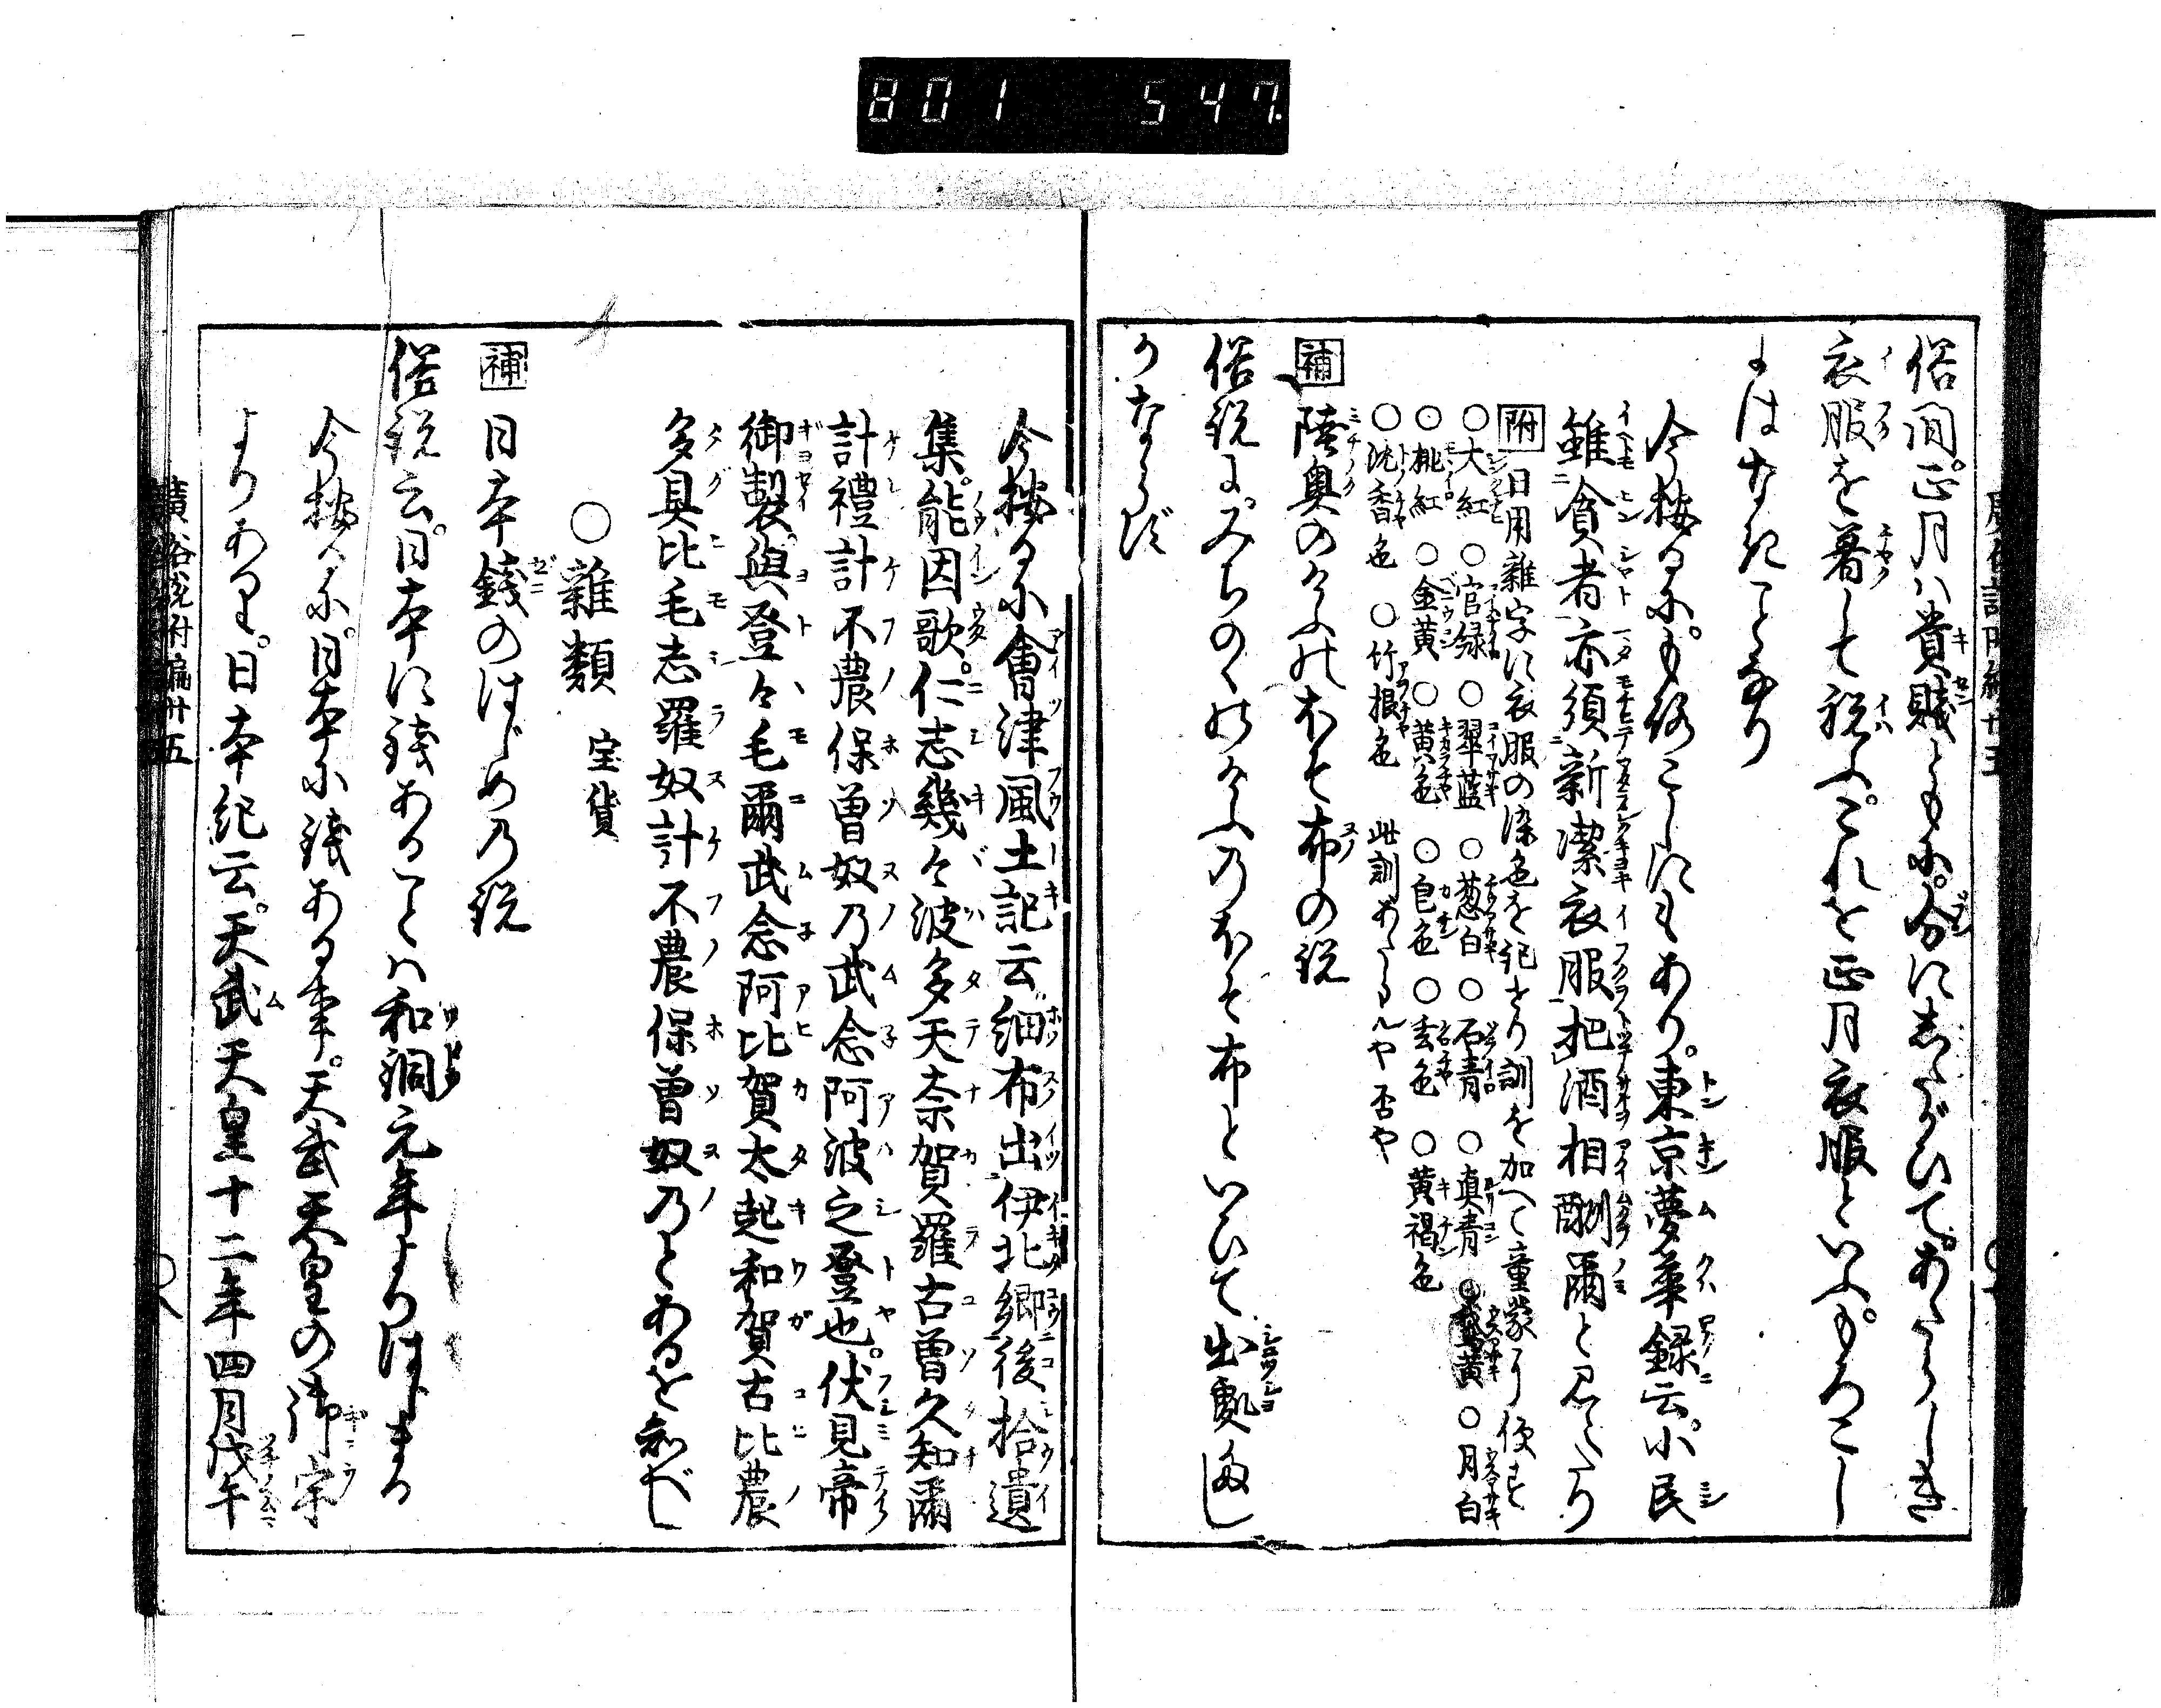 801 547
俗間。正月ハ貴賤ともに。分にしたがひて。あたらしき
衣服を著して祝ふ。これを正月衣服といふ。もろこし
にはなきことなり
今按るに。もろこしにもあり。東京夢華録云。小民
雖貧者亦須新潔衣服把酒相酬爾と見えたり
附 日用雑字に衣服の染色を紀せり訓を加へて童蒙に便す
○大紅 ○官緑 ○翠藍 ○葱白 ○石青 ○真青 ○鵞黄 ○月白
○桃紅 ○金黄 ○黄色 ○皀色 ○玄色 ○黄褐色
○沈香色 ○竹根色 此訓あたらんや否や
補 陸奥のけふのほそ布の説
俗説に。みちのくのけふのほそ布といひて出處
かならず
今按るに會津風土記云細布出伊北郷後拾遺
集。能因歌。仁志幾々波多天奈賀羅古曽久知爾
計禮計不農保曽奴乃武念阿波之登也。伏見帝
御製。與登々毛爾武念阿比賀太起和賀古比農
多具比毛志羅奴計不農保曽奴乃とあるを知べし
○雜類 宝貨
補 日本錢のはじめの説
俗説云。日本に錢あることハ和銅元年よりはじまる
今按るに。日本に錢ある事。天武天皇の御宇
よりあり。日本紀云。天武天皇十二年四月戊午
廣俗説附編廿五